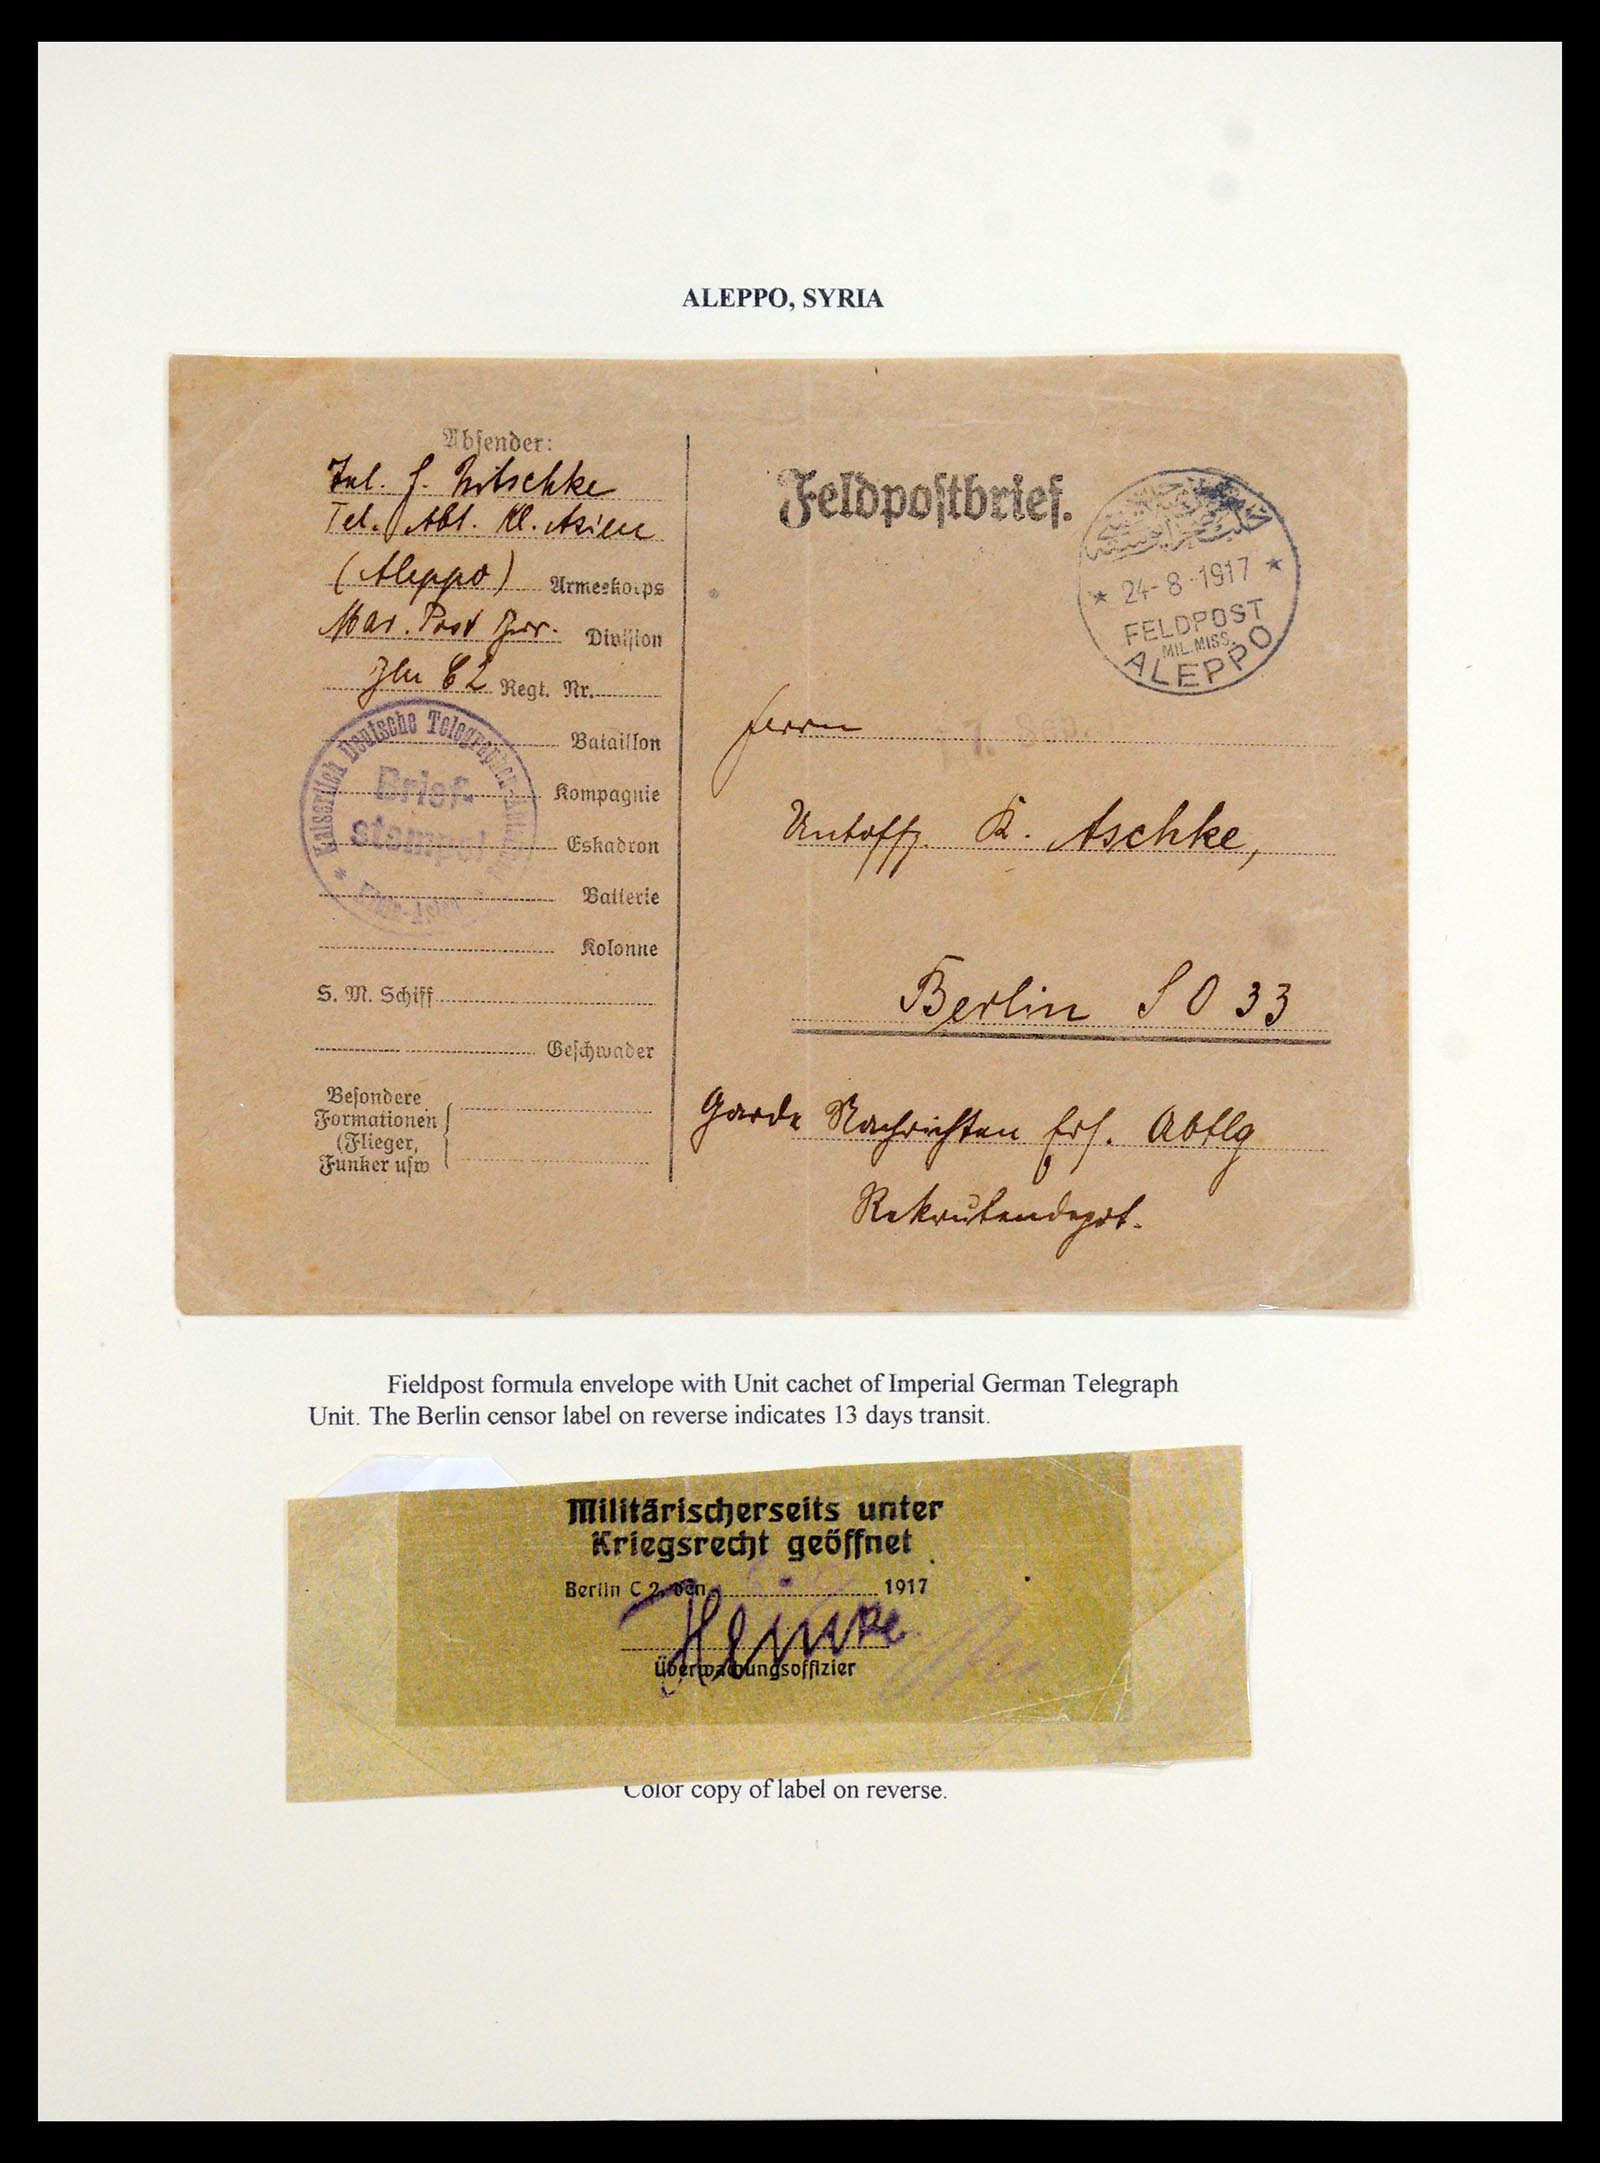 ALEPPO, SYRIA
Absender:
Tel. Abt. Kl. Asien
(Aleppo) Armeekorps
Mar. Post Division
Regt. Nr.
Bataillon
Kompagnie
Eskadron
Batterie
Kolonne
S. M. Schiff
Geschwader
Besondere
Formationen
(Flieger,
Funker usw
Kaiserlich Deutsche Telegraphen-
Brief-
stempel
Feldpostbrief.
24-8-1917
FELDPOST
MIL. MISS.
ALEPPO
Herrn
7. Sep.
Untoffz. K. Aschke,
Berlin S O 33
Garde Nachrichten Ers. Abtlg
Rekrutendepot.
Fieldpost formula envelope with Unit cachet of Imperial German Telegraph
Unit. The Berlin censor label on reverse indicates 13 days transit.
Militärischerseits unter
Kriegsrecht geöffnet
Berlin C 2, den 1917
Überwachungsoffizier
Color copy of label on reverse.